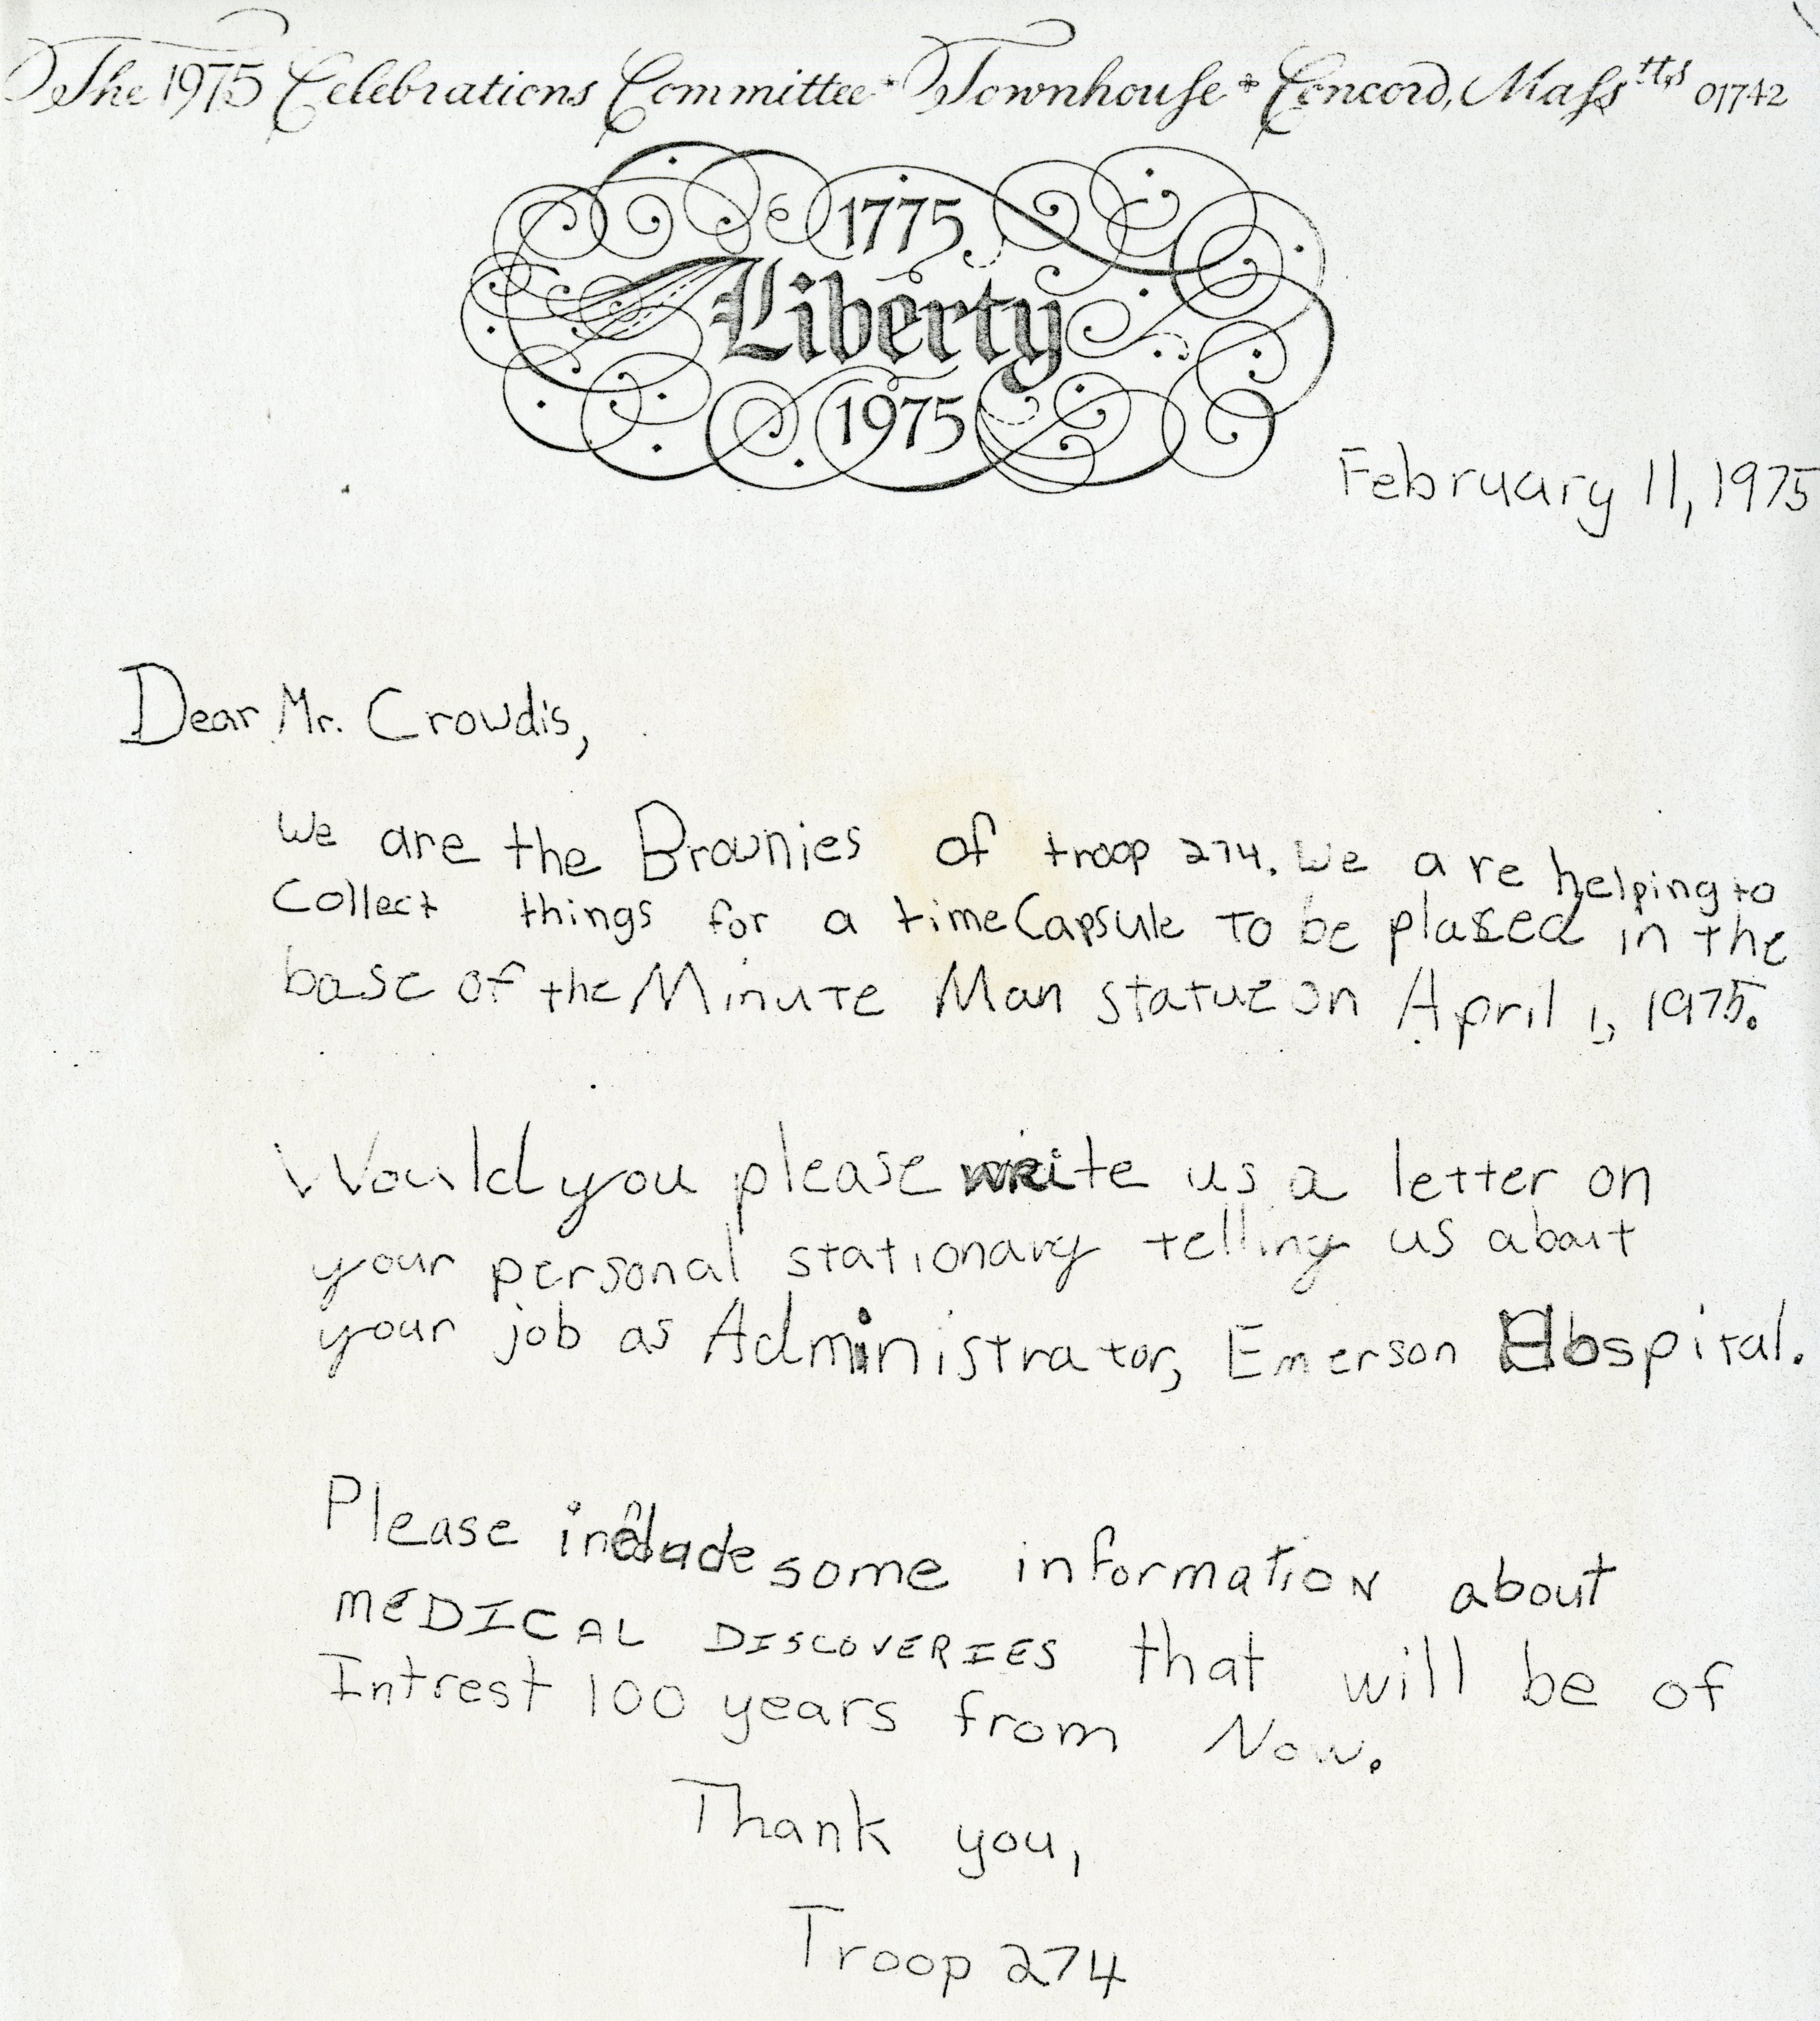 The 1975 Celebrations Committee * Townhouse * Concord, Masstts 01742
1775
Liberty
1975
February 11, 1975
Dear Mr. Crowdis,
We are the Brownies of troop 274. We are helping to
Collect things for a time Capsule to be plased in the
base of the Minute Man statue on April 1, 1975.
Would you please write us a letter on
your personal stationary telling us about
your job as Administrator, Emerson Hospital.
Please include some information about
MEDICAL DISCOVERIES that will be of
Intrest 100 years from Now.
Thank you,
Troop 274